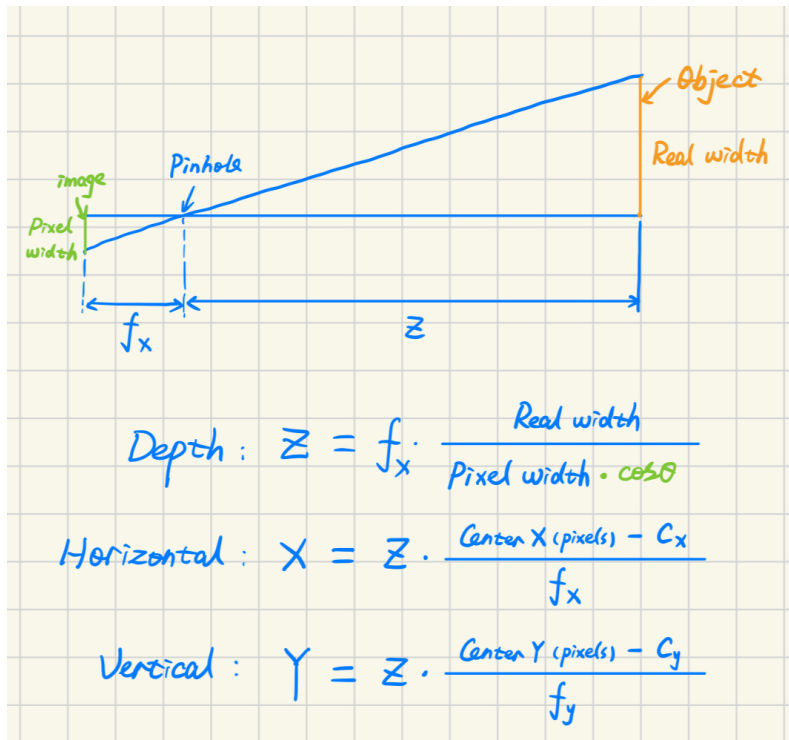 Object
Real width
Pinhole
image
Pixel
width
fx
Z
Depth: Z = fx · Real width / Pixel width · cosθ
Horizontal: X = Z · Center X (pixels) - Cx / fx
Vertical: Y = Z · Center Y (pixels) - Cy / fy